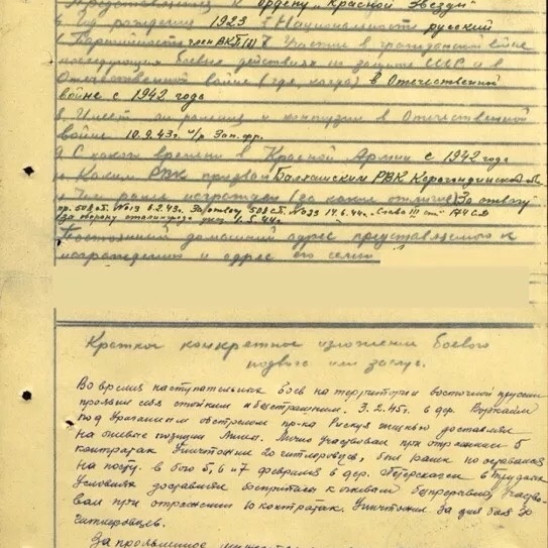 Представлен к ордену "Красной Звезды"
5 Год рождения 1923 Национальность русский
6. Партийность член ВКП(б) 7 Участие в гражданской войне
последующих боевых действиях по защите СССР и в
Отечественной войне (где, когда) в Отечественной
войне с 1942 года
8 Имеет ли ранения и контузии в Отечественной
войне 10.9.43г. Зап. фр.
9 С какого времени в Красной Армии с 1942 года
Каким РВК призван Балхашским РВК Карагандинск
Чем ранее награжден (за какие отличия) За отвагу
пр. 508 сп. №13 6.2.43г. За отвагу 508 сп. №33 14.6.44г. "Слава III ст" 174 СД
за оборону 1.5.44г.
Постоянный домашний адрес представляемого к
награждению и адрес его семьи
Краткое конкретное изложение боевого
подвига или заслуг.
Во время наступательных боев на территории восточной пруссии
проявил себя стойким и бесстрашным. 3.2.45г. в дер.
под Ураганным обстрелом пр-ка Рискуя жизнью доставлял
на огневые позиции Мины. Лично участвовал при отражении 5
контратак Уничтожил 20 гитлеровцев,
На посту. в бою 5, 6 и 7 февраля в дер. в трудных
Условиях доставлял
вал при отражении 10 контратак. Уничтожил за дни боя 30
гитлеровцев.
За проявленное